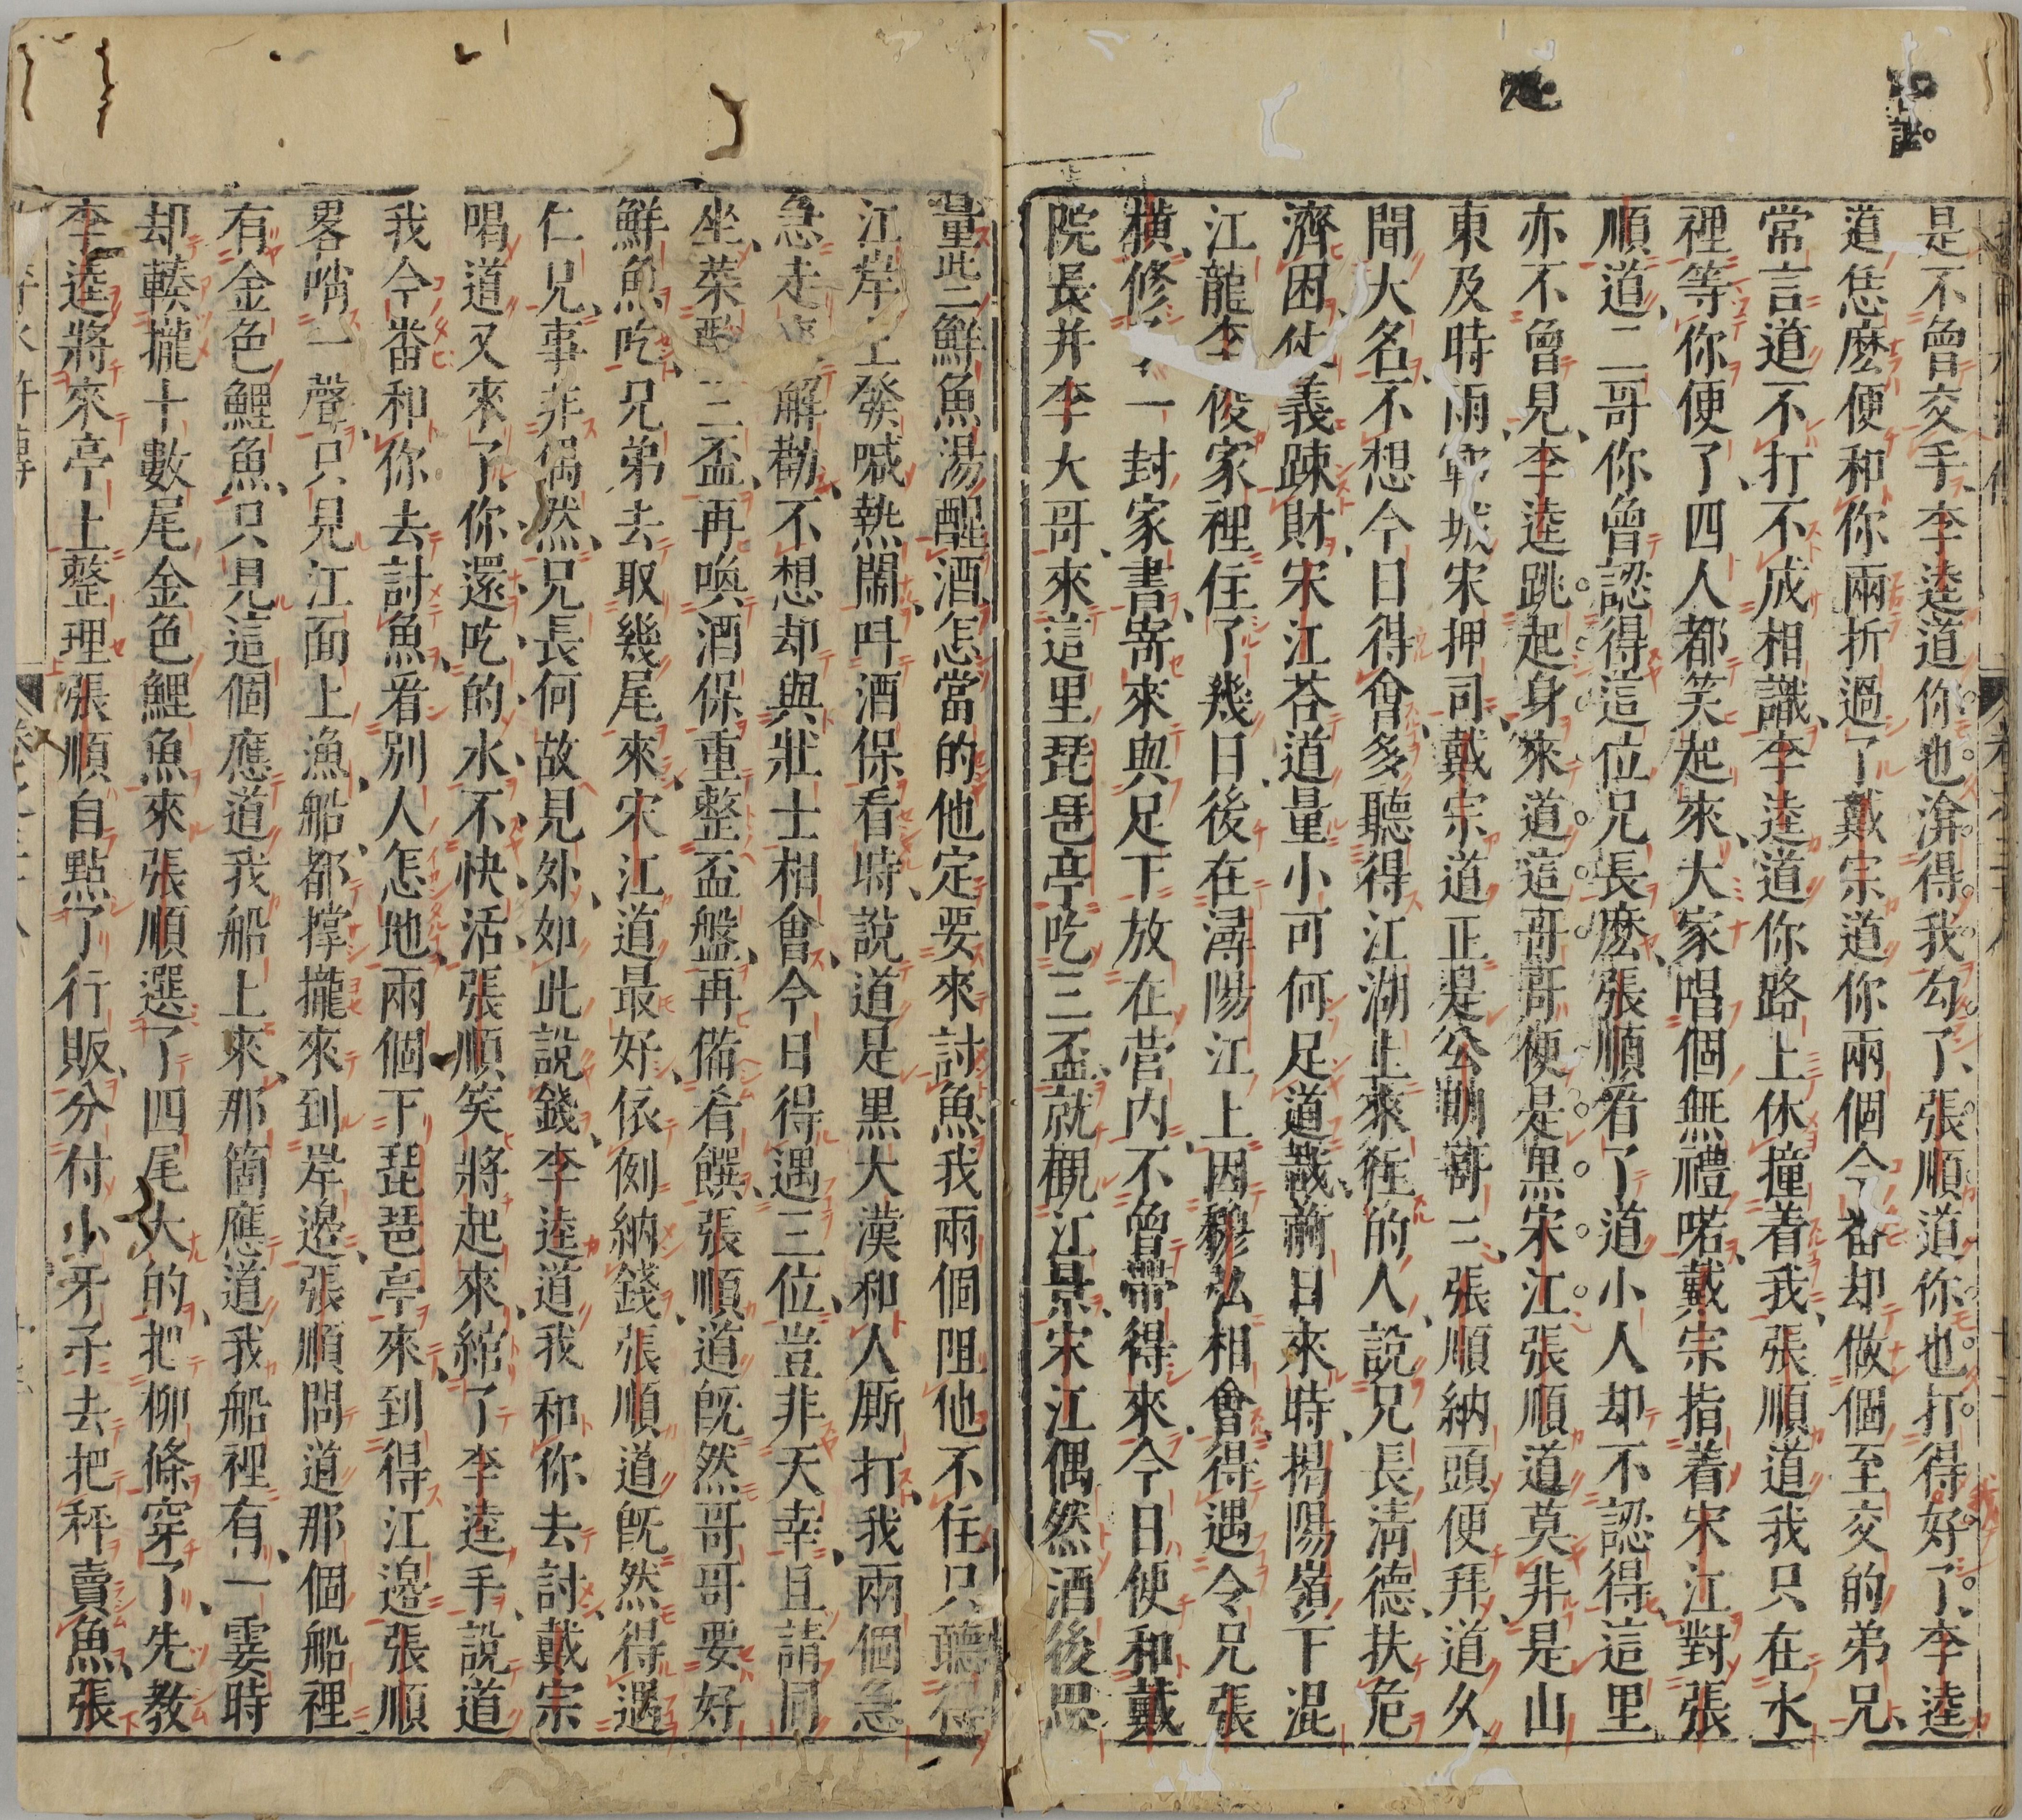 是不曾交手李逵道你也渰得我勾了張順道你也打得好了李逵
道恁麽便和你兩折過了戴宗道你兩個今番却做個至交的弟兄
常言道不打不成相識李逵道你路上休撞着我張順道我只在水
裡等你便了四人都笑起來大家唱個無禮喏戴宗指着宋江對張
順道二哥你曾認得這位兄長麽張順看了道小人却不認得這里
亦不曾見李逵跳起身來道這哥哥便是黑宋江張順道莫非是山
東及時雨鄆城宋押司戴宗道正是公明哥三張順納頭便拜道久
聞大名不想今日得會多聽得江湖上來往的人說兄長清德扶危
濟困仗義疎財宋江荅道量小可何足道哉前日來時揭陽嶺下混
江龍李俊家裡住了幾日後在潯陽江上因穆弘相會得遇令兄張
橫修了一封家書寄來與足下放在营内不曾帶得來今日便和戴
院長并李大哥來這里琵琶亭吃三盃就觀江景宋江偶然酒後思
量些二鮮魚湯醒酒怎當的他定要來討魚我兩個阻他不住只聽得
江岸上發喊熱鬧叫酒保看時說道是黑大漢和人厮打我兩個急
急走來解勸不想却與壯士相會今日得遇三位豈非天幸且請同
坐菜酌三盃再喚酒保重整盃盤再俻肴饌張順道旣然哥哥要好
鮮魚吃兄弟去取幾尾來宋江道最好依例納錢張順道旣然得遇
仁兄事非偶然兄長何故見外如此說錢李逵道我和你去討戴宗
唱道又來了你還吃的水不快活張順笑將起來綰了李逵手說道
我今番和你去討魚看別人怎地兩個下琵琶亭來到得江邊張順
畧哨一聲只見江面上漁船都撑攏來到岸邊張順問道那個船裡
有金色鯉魚只見這個應道我船上來那箇應道我船裡有一霎時
却輳攏十數尾金色鯉魚來張順選了四尾大的把柳條穿了先教
李逵將來亭上整理張順自點了行販分付小牙子去把秤賣魚張